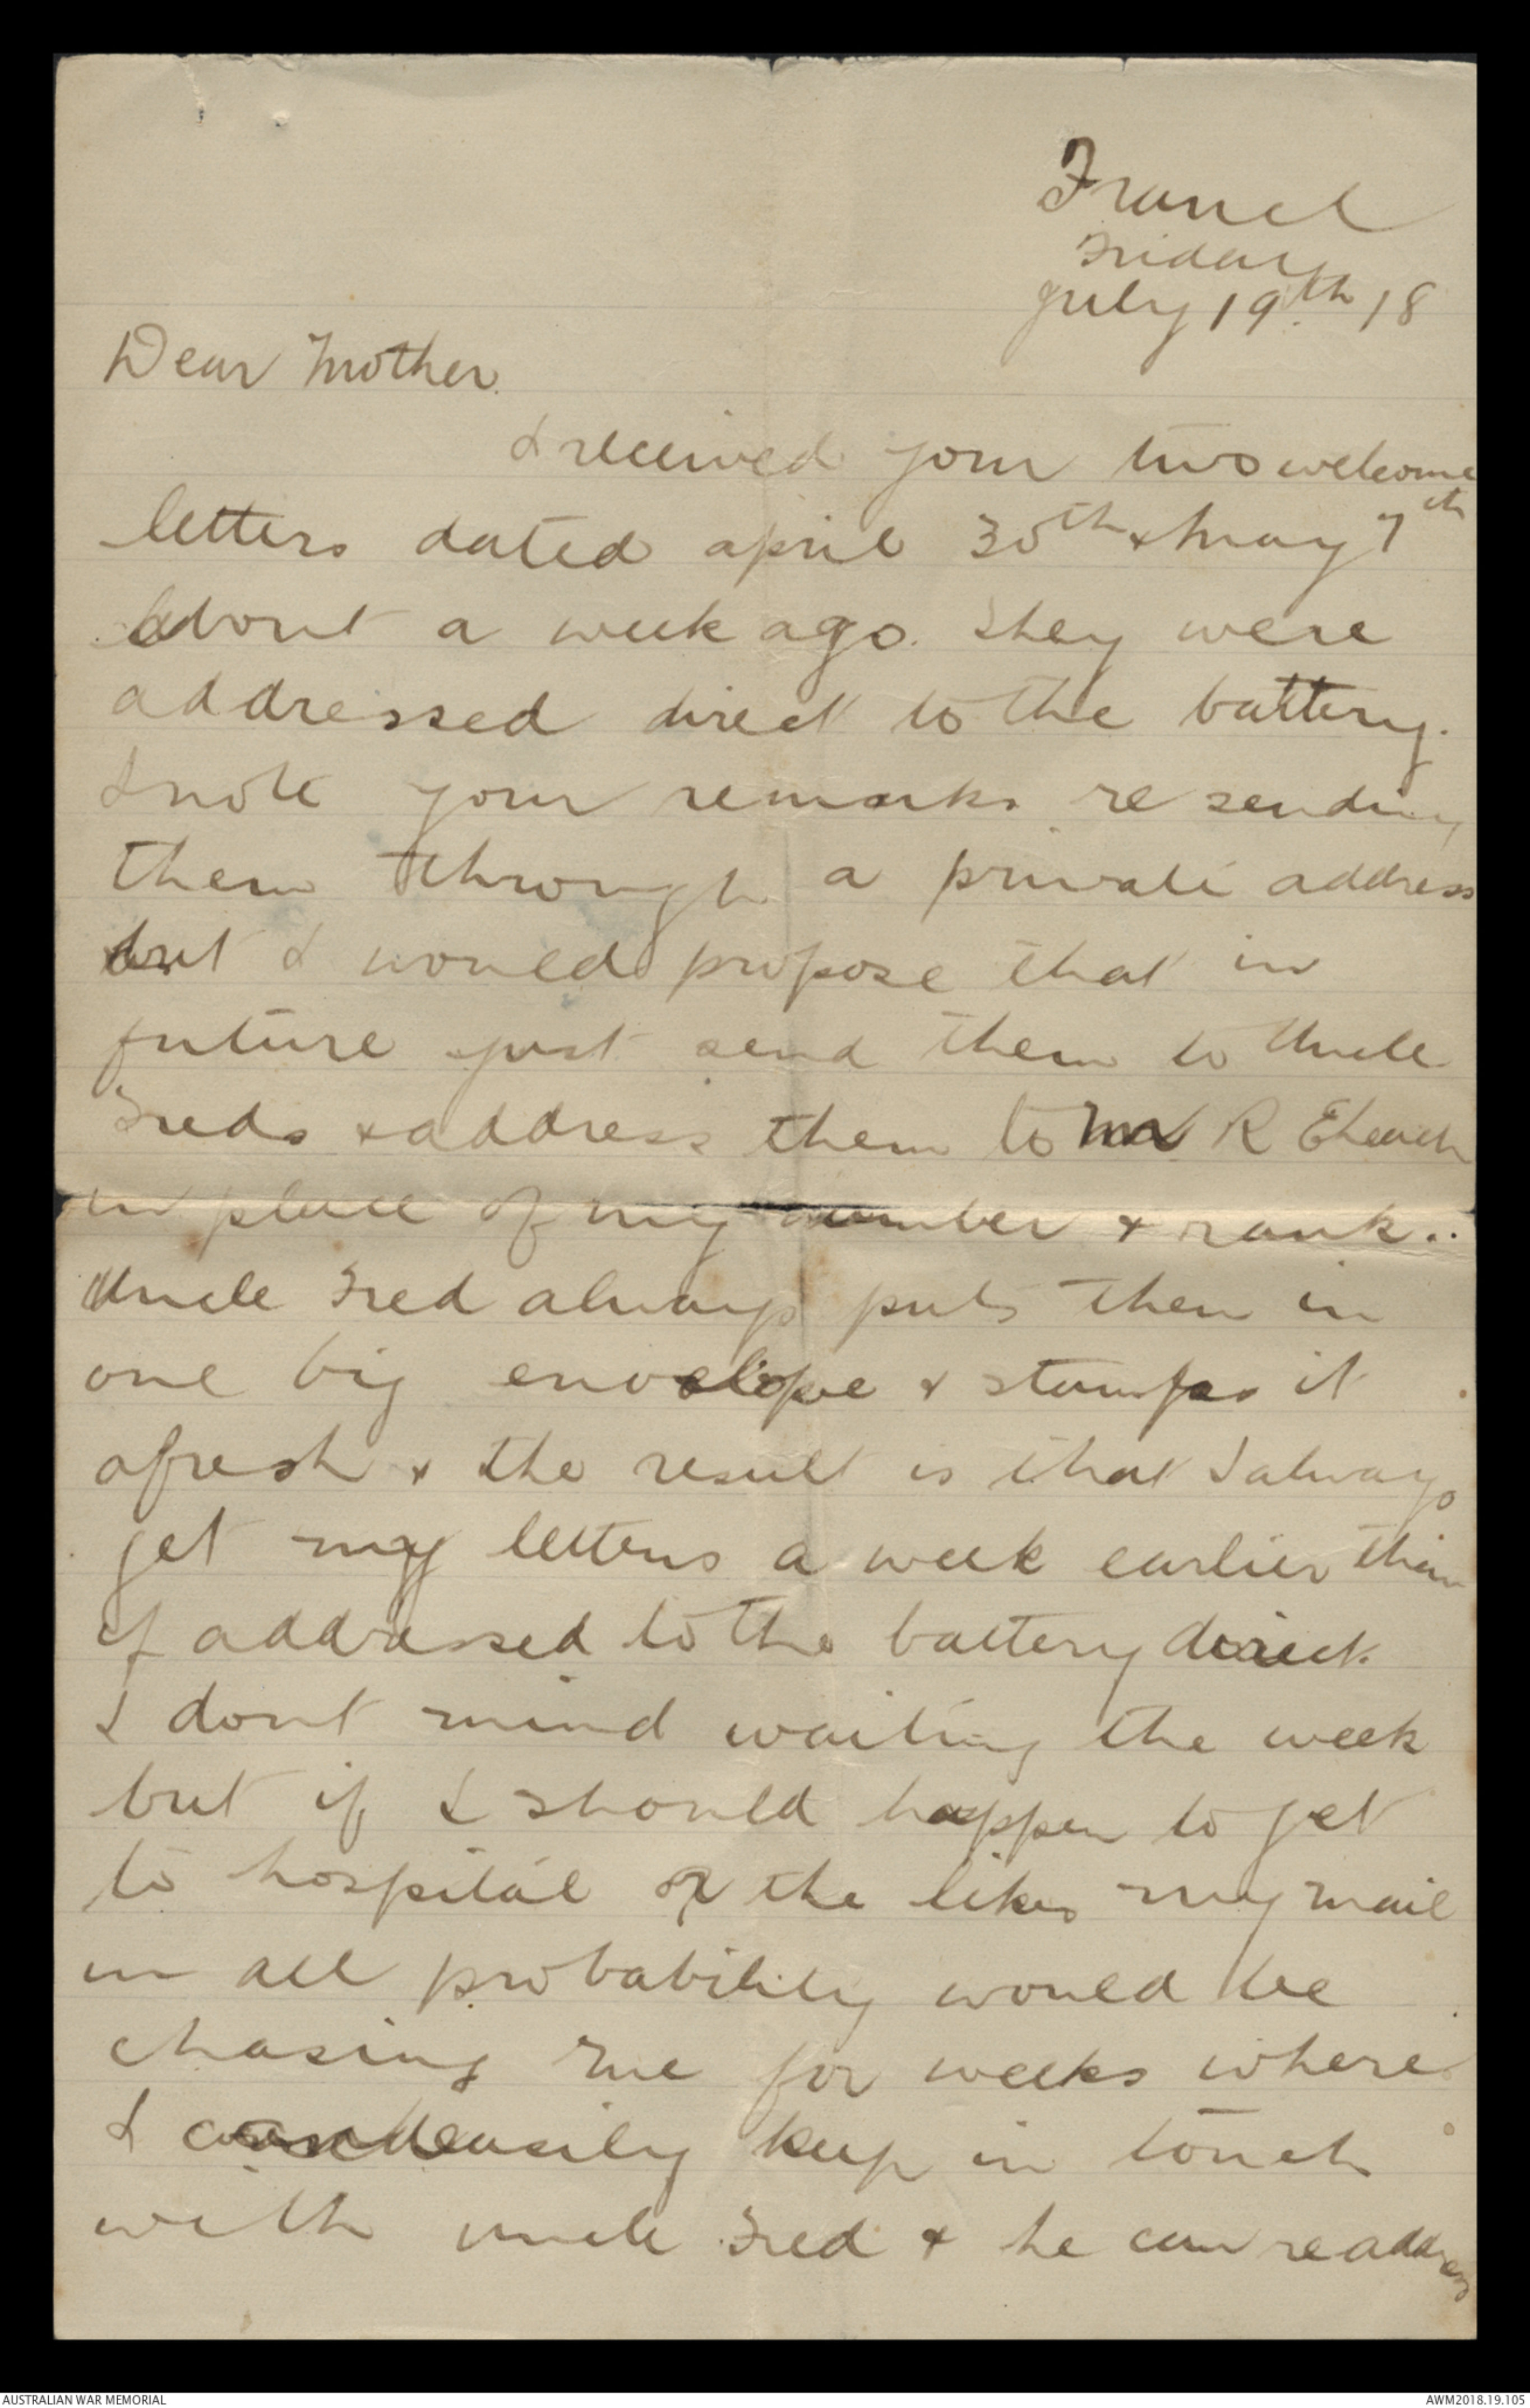 France
Friday
July 19th 18
Dear Mother.
I received your two welcome
letters dated april 30th & May 7th
about a week ago. They were
addressed direct to the battery.
I note your remarks re sending
them through a private address
but I would propose that in
future just send them to Uncle
Freds & address them to Mr R E
in place of my number & rank..
Uncle Fred always puts them in
one big envelope & stamps it
afresh & the result is that I always
get my letters a week earlier than
if addressed to the battery direct.
I dont mind waiting the week
but if I should happen to get
to hospital or the likes my mail
in all probability would be
chasing me for weeks where
I can easily keep in touch
with uncle Fred & he can readdress
AUSTRALIAN WAR MEMORIAL
AWM2018.19.105